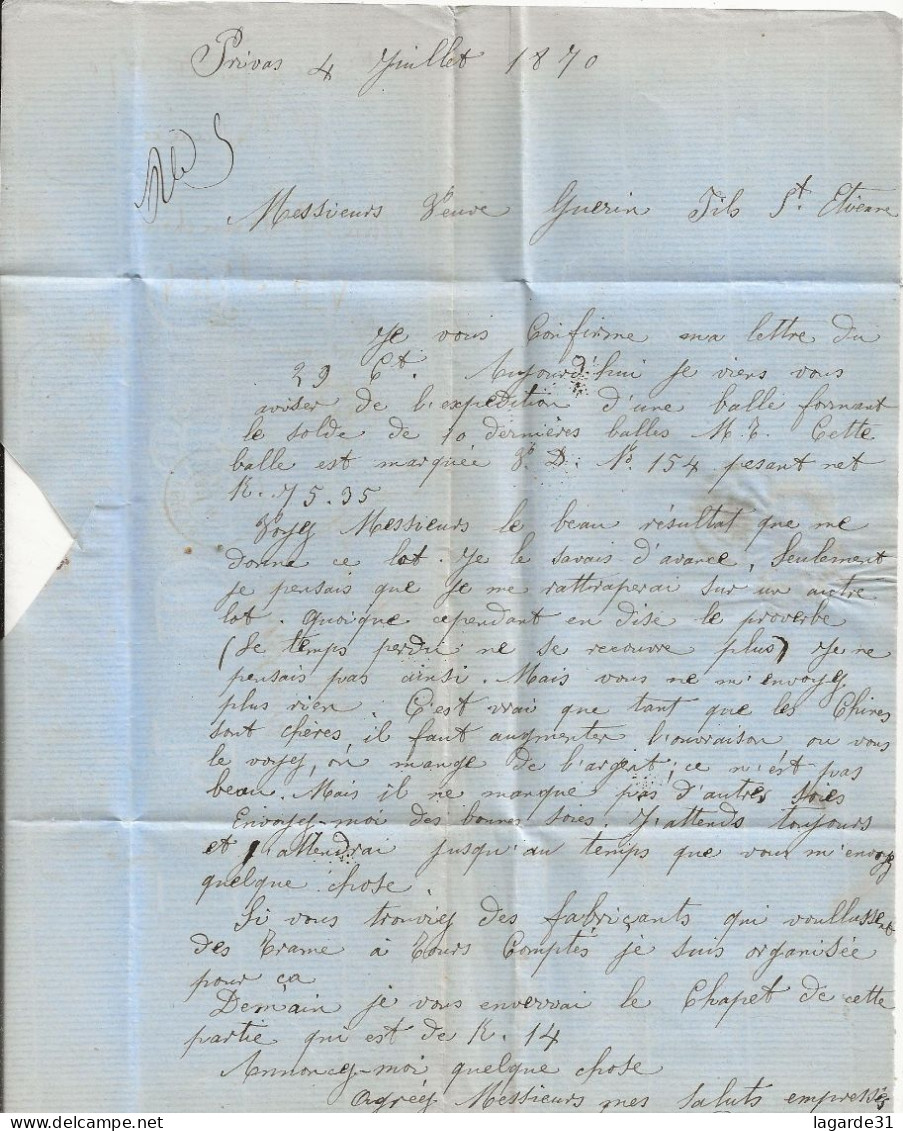 Privas 4 Juillet 1870
Messieurs Veuve Guerin Fils St. Etienne
Je vous Confirme ma lettre du
29 Ct. Aujourd'hui je viens vous
aviser de l'expedition d'une balle formant
le solde de 10 dernières balles M.T. Cette
balle est marquée V.D. No. 154 pesant net
K. 75.35
Voyez Messieurs le beau résultat que me
donne ce lot. Je le savais d'avance, Seulement
je pensais que je me rattraperai sur un autre
lot. Quoique cependant en dise le proverbe
(Le temps perdu ne se recouvre plus) Je ne
pensais pas ainsi. Mais vous ne m'envoyez
plus rien. C'est vrai que tant que les Chines
sont chères il faut augmenter l'ouvraison ou vous
le voyez, on mange de l'argent; ce n'ést pas
beau. Mais il ne manque pas d'autres soies
Envoyez-moi des bonnes soies. J'attends toujours
et j'attendrai jusqu'au temps que vous m'envoyez
quelque chose.
Si vous trouviez des fabriçants qui voullussent
des Trame à Tours Comptés je suis organisée
pour ça
Demain je vous enverrai le Chapet de cette
partie qui est de K. 14
Annoncez-moi quelque chose
Agréez Messieurs mes saluts empressés
lagarde31